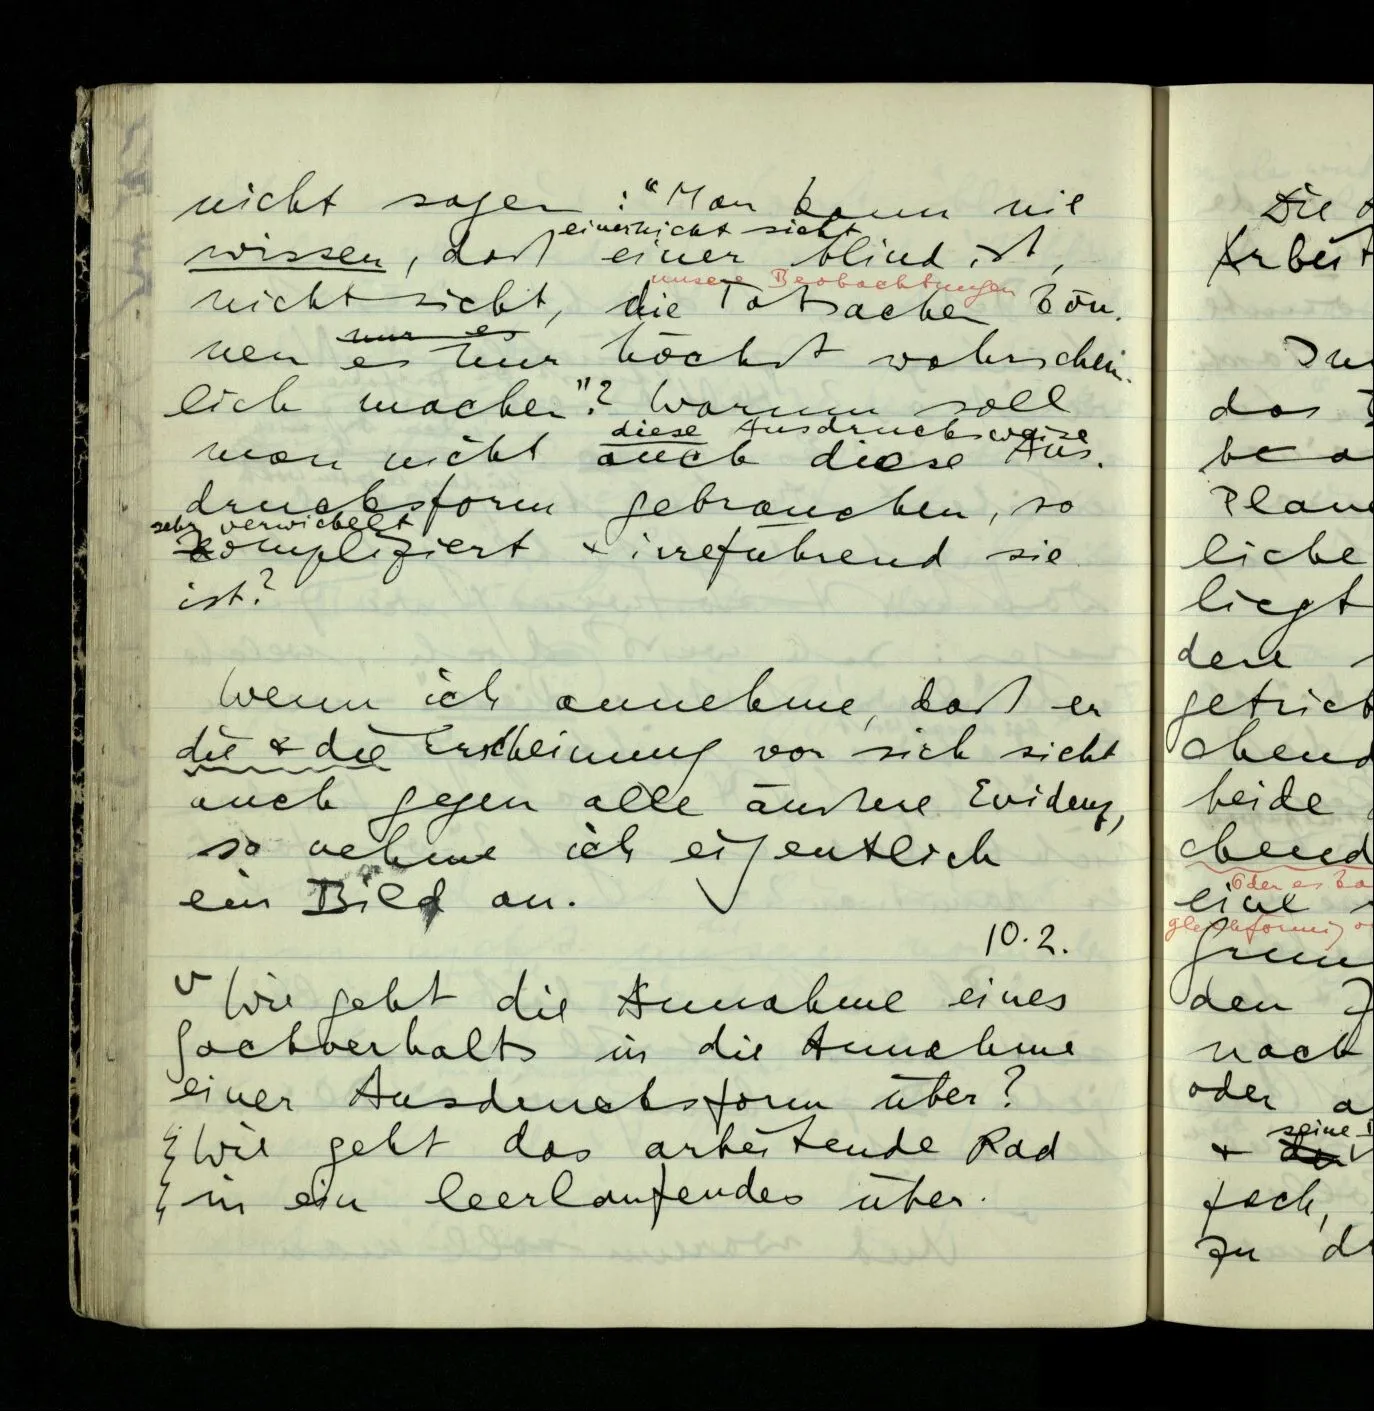 nicht sagen : "Man kann nie
einer nicht sieht
wissen, daß einer blind ist,
unsere Beobachtungen
nicht sieht, die Tatsachen kön-
nur es
nen es nur höchst wahrschein-
lich machen"? Warum soll
diese Ausdrucksweise
man nicht auch diese Aus-
drucksform gebrauchen, so
sehr verwickelt
kompliziert & irreführend sie
ist?
Wenn ich annehme, daß er
die & die Erscheinung vor sich sieht
auch gegen alle äußere Evidenz,
so nehme ich eigentlich
ein Bild an.
10.2.
Wie geht die Annahme eines
Sachverhalts in die Annahme
einer Ausdrucksform über?
Wie geht das arbeitende Rad
in ein leerlaufendes über.
Die
Arbeit
das
liche
liegt
beide
oder es
eine
gleichförmig
den
nach
oder
seine
&
fach,
zu